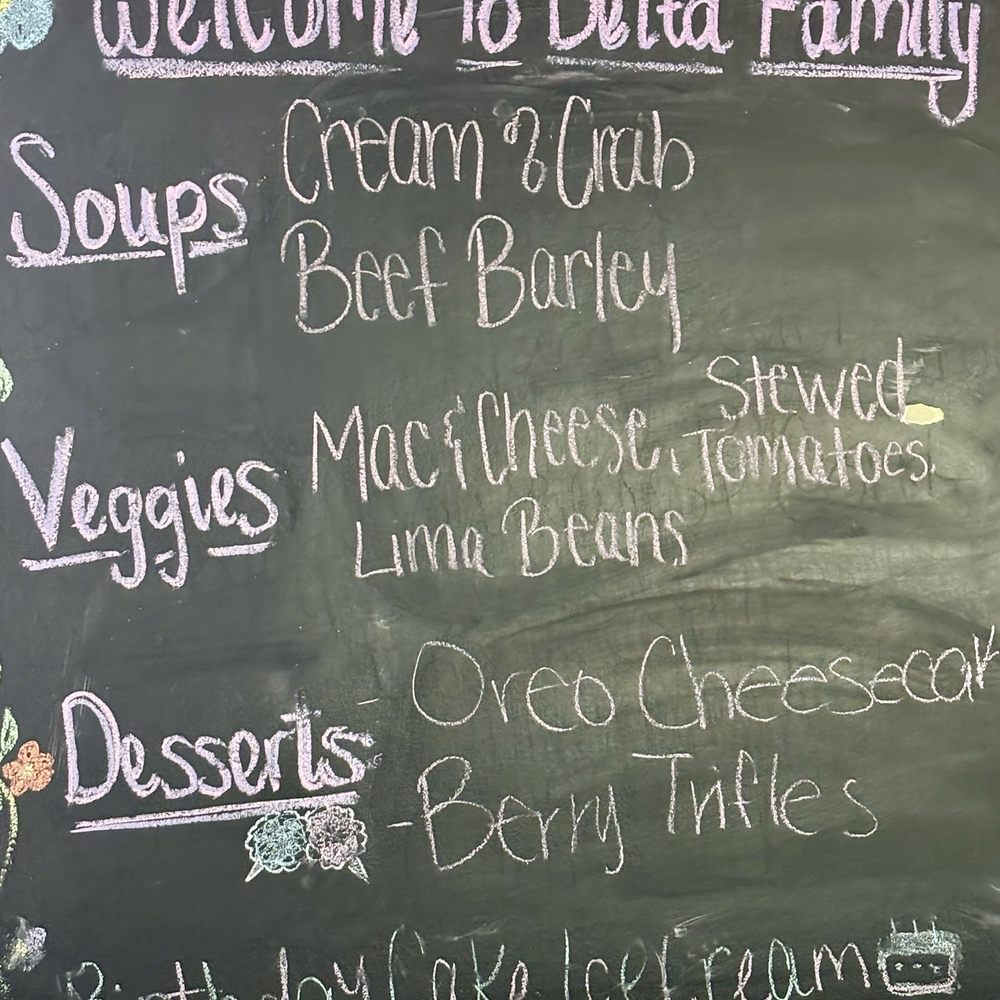 Welcome To Delta Family
Soups
Cream & Crab
Beef Barley
Veggies
Mac & Cheese, Stewed
Tomatoes.
Lima Beans
Desserts
- Oreo Cheesecak
- Berry Trifles
Birthday Cake Ice Cream